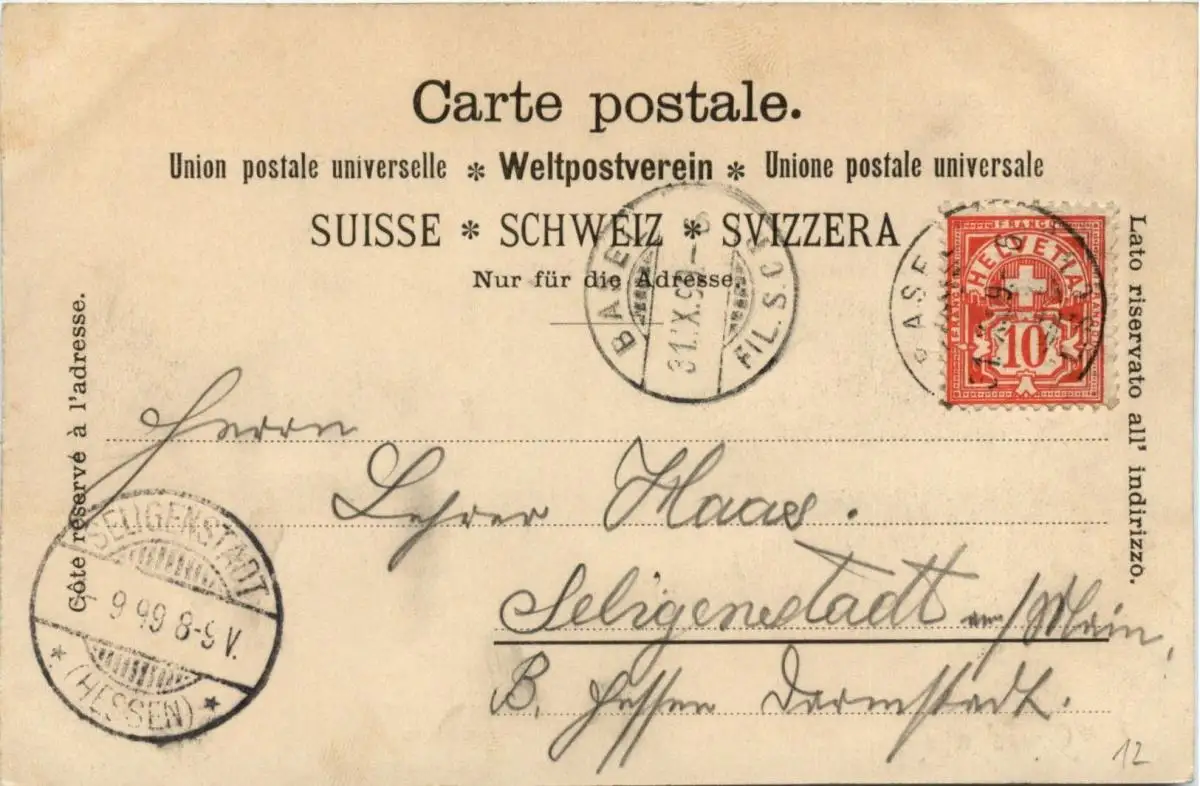 Carte postale.
Union postale universelle * Weltpostverein * Unione postale universale
SUISSE * SCHWEIZ * SVIZZERA
Nur für die Adresse.
Côte réservé à l'adresse.
Lato riservato all' indirizzo.
FRANCO
HELVETIA
FRANCO
FRANCO
10
BASEL
BASEL
FIL. S.C.B.
Herrn
Lehrer Maas.
Seligenstadt am/Main,
B. Hessen Darmstadt.
SELIGENSTADT
9 99 8-9 V.
* (HESSEN) *
12